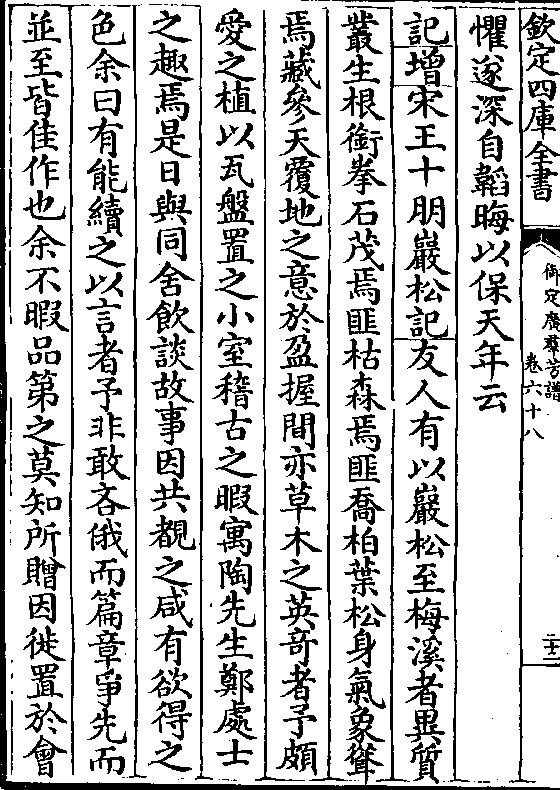 欽定四庫全書
御定廣羣芳譜
卷六十八
二十二
懼遂深自韜晦以保天年云
記增宋王十朋巖松記友人有以巖松至梅溪者異質
叢生根銜拳石茂焉匪枯森焉匪喬柏葉松身氣象聳
焉藏參天覆地之意於盈握間亦草木之英竒者予頗
愛之植以瓦盤置之小室稽古之暇寓陶先生鄭處士
之趣焉是日與同舍飲談故事因共覩之咸有欲得之
色余曰有能續之以言者予非敢吝俄而篇章爭先而
並至皆佳作也余不暇品第之莫知所贈因徙置於會